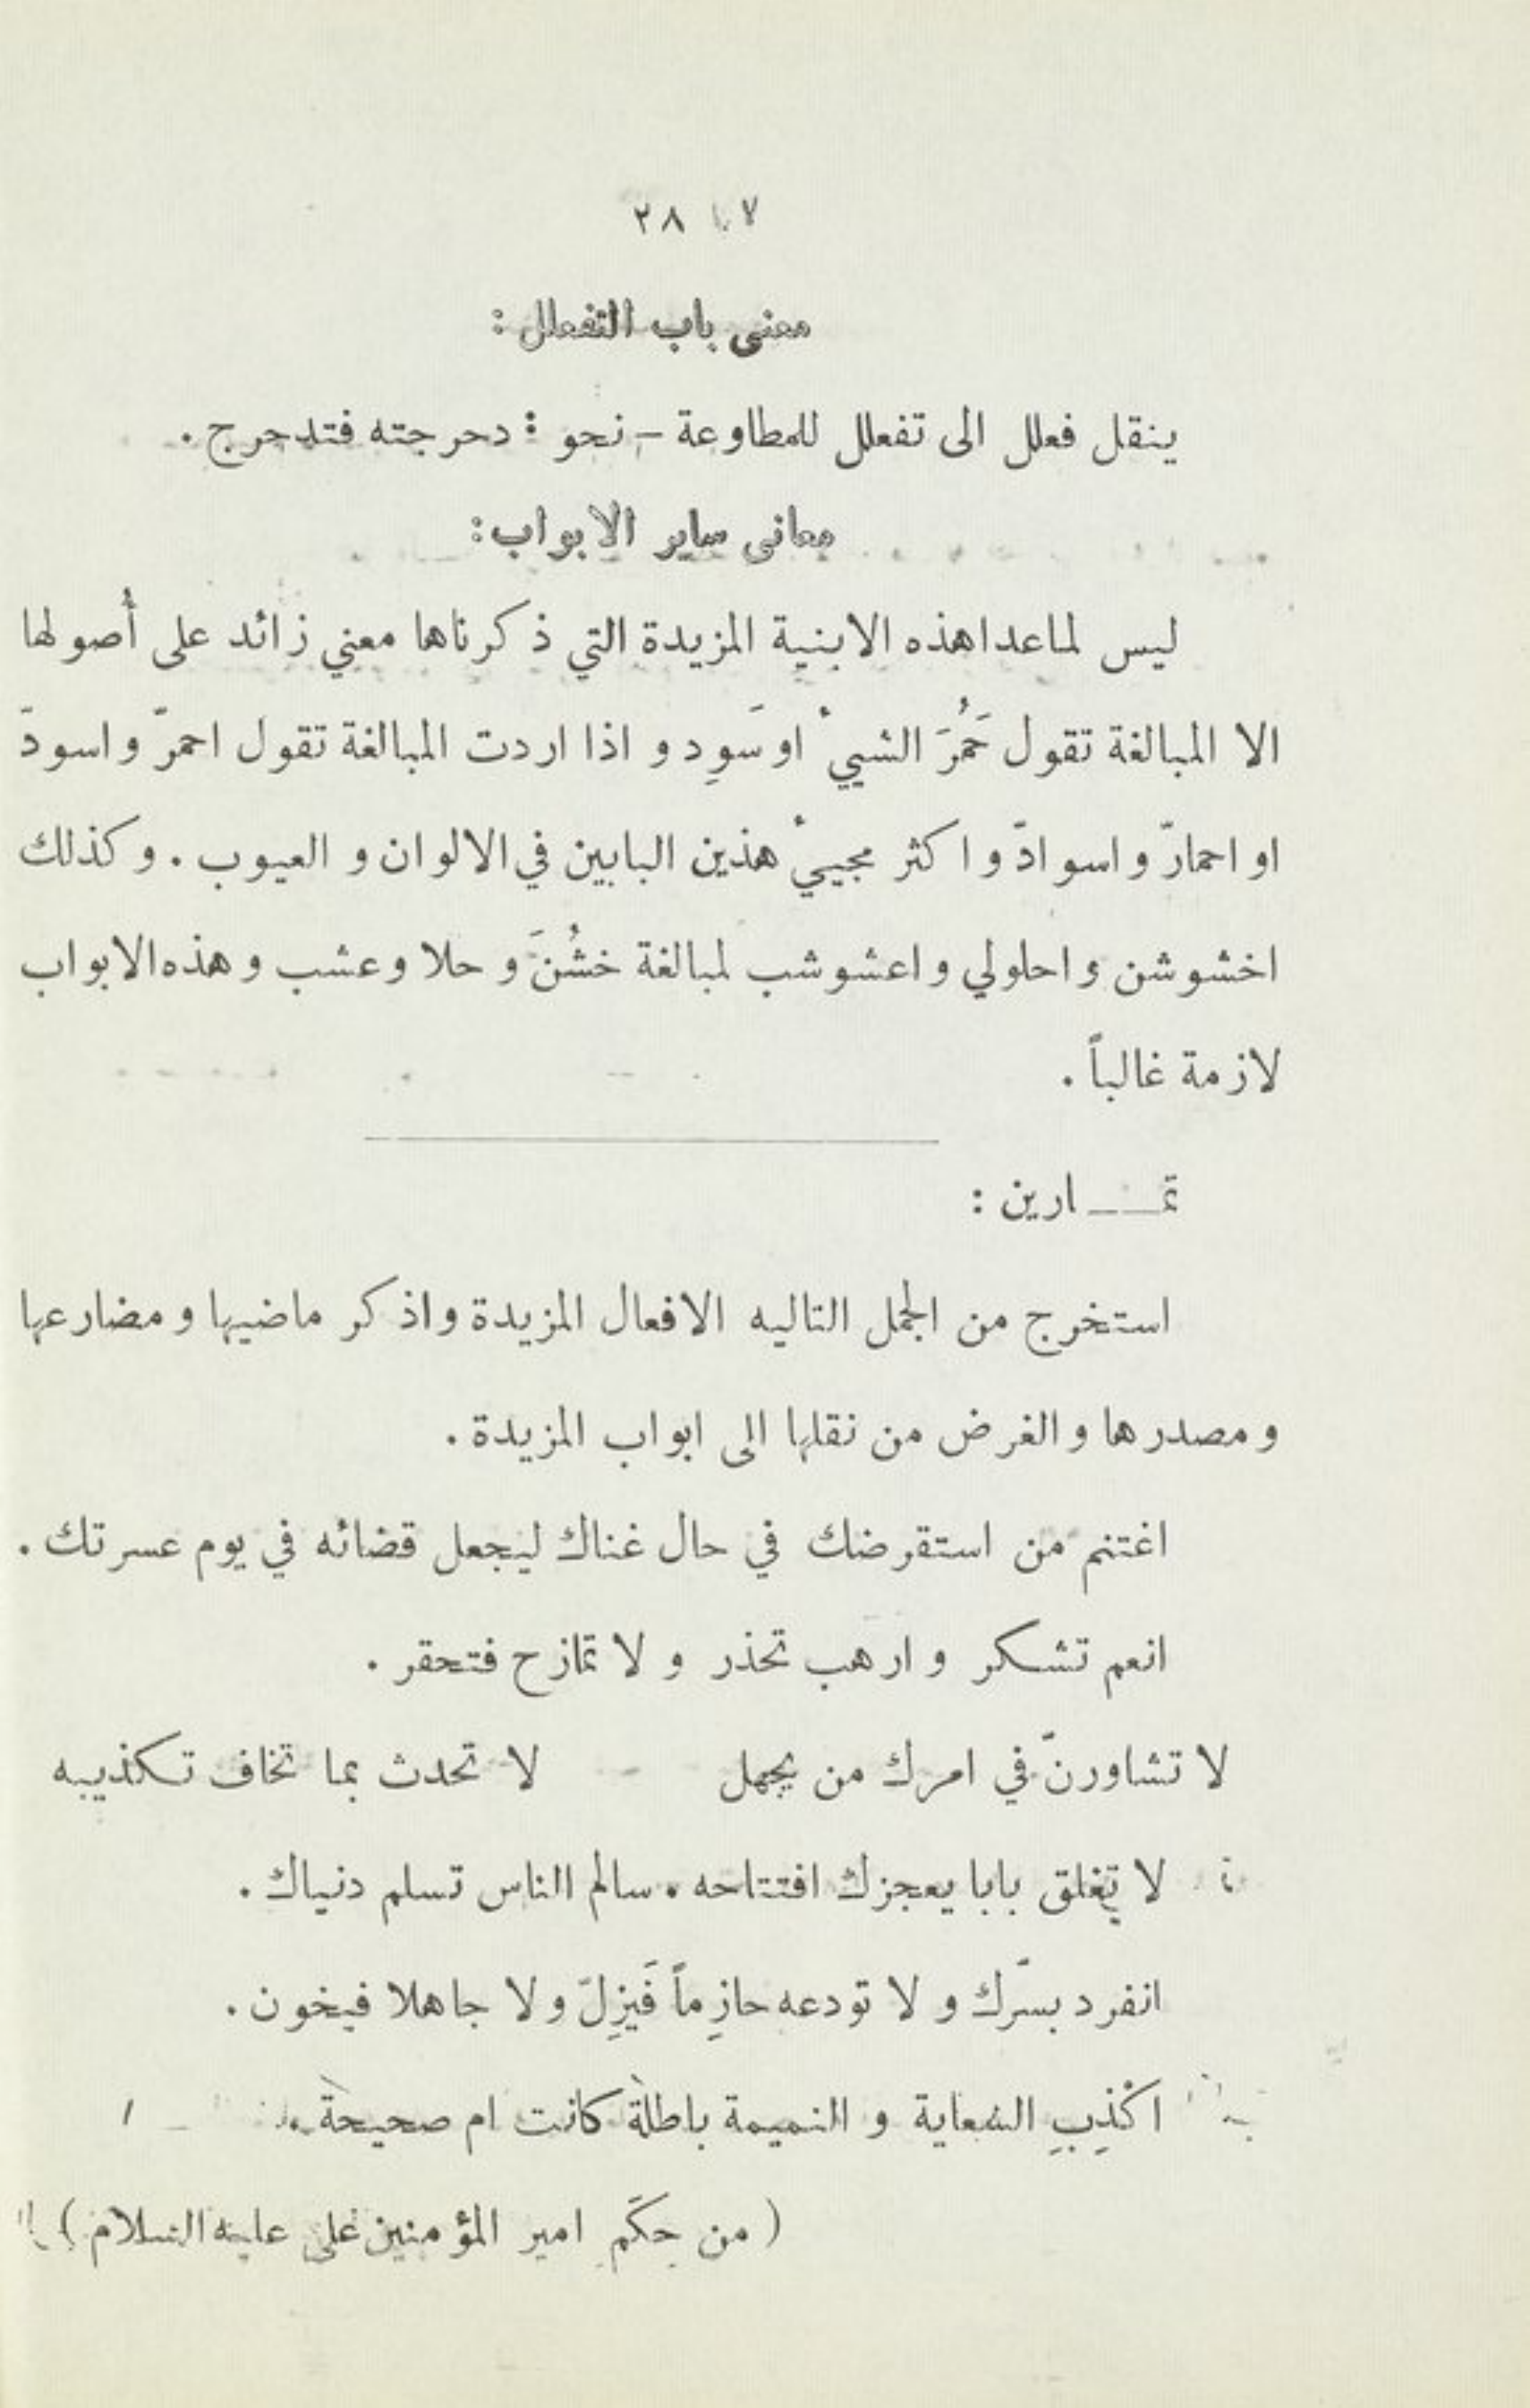 ٢٨
معنى باب التفعلل :
ينقل فعلل الى تفعلل للمطاوعة – نحو : دحرجته فتدحرج .
معانى ساير الابواب :
ليس لماعداهذه الابنية المزيدة التي ذكرناها معني زائد على أصولها
الا المبالغة تقول حَمُرَ الشييء اوسَوِد و اذا اردت المبالغة تقول احمرّ و اسودّ
او احمارّ و اسوادّ و اكثر مجييء هذين البابين في الالوان و العيوب . و كذلك
اخشوشن و احلولي و اعشوشب لمبالغة خشُنَ و حلا و عشب و هذه الابواب
لازمة غالباً .
تمـــارين :
استخرج من الجمل التاليه الافعال المزيدة واذكر ماضيها و مضارعها
و مصدرها و الغرض من نقلها الى ابواب المزيدة .
اغتنم من استقرضك في حال غناك ليجعل قضائه في يوم عسرتك .
انعم تشكر و ارهب تحذر و لا تمازح فتحقر .
لا تشاورنّ في امرك من يجهل لا تحدث بما تخاف تكذيبه
لا تغلق بابا يعجزك افتتاحه . سالم الناس تسلم دنياك .
انفرد بسرّك و لا تودعه حازِماً فَيزِلّ و لا جاهلا فيخون .
اكْذِبِ السعاية و النميمة باطلة كانت ام صحيحة .
( من حِكَم امير المؤمنين على عليه السلام )